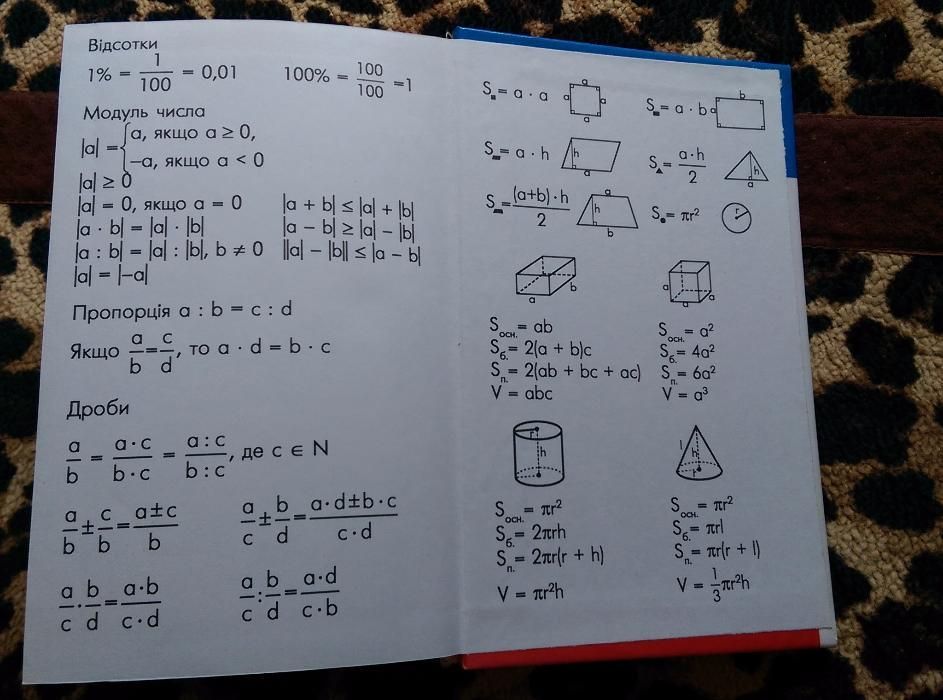 Відсотки
1% = 1/100 = 0,01 100% = 100/100 =1
Модуль числа
|a| = { a, якщо a ≥ 0,
–a, якщо a < 0
|a| ≥ 0
|a| = 0, якщо a = 0 |a + b| ≤ |a| + |b|
|a · b| = |a| · |b| |a – b| ≥ |a| – |b|
|a : b| = |a| : |b|, b ≠ 0 ||a| – |b|| ≤ |a – b|
|a| = |–a|
Пропорція a : b = c : d
Якщо a/b = c/d, то a · d = b · c
Дроби
a/b = a·c/b·c = a:c/b:c, де c ∈ N
a/b ± c/b = a±c/b a/c ± b/d = a·d±b·c/c·d
a/c · b/d = a·b/c·d a/c : b/d = a·d/c·b
S■ = a · a a a a a S▬ = a · b a b
S▰ = a · h h a S▲ = a·h/2 h a
S = (a+b)·h/2 a h b S● = πr² r
a b a a a
Sосн. = ab Sосн. = a²
Sб. = 2(a + b)c Sб. = 4a²
Sп. = 2(ab + bc + ac) Sп. = 6a²
V = abc V = a³
r h l h r
Sосн. = πr² Sосн. = πr²
Sб. = 2πrh Sб. = πrl
Sп. = 2πr(r + h) Sп. = πr(r + l)
V = πr²h V = 1/3 πr²h